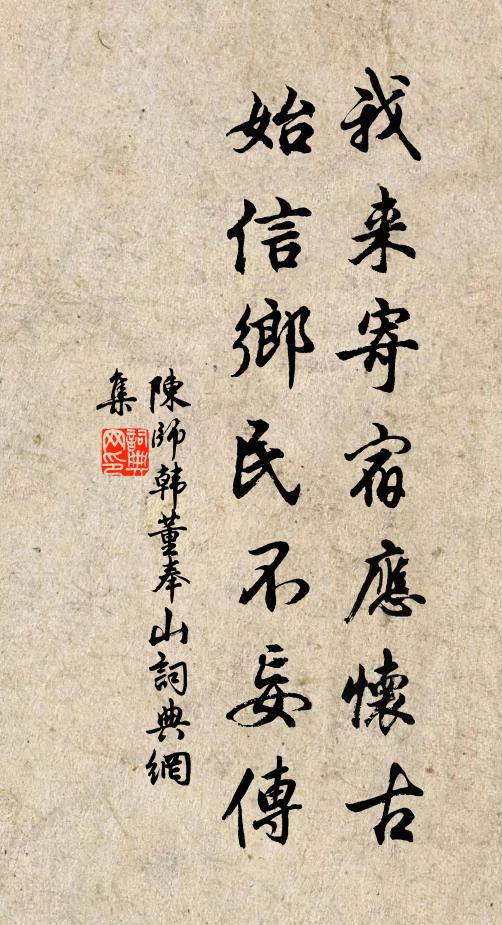 我来寄宿應懷古
始信鄉民不妄傳
陳師韓董奉山詞典網
集
詞典
网印